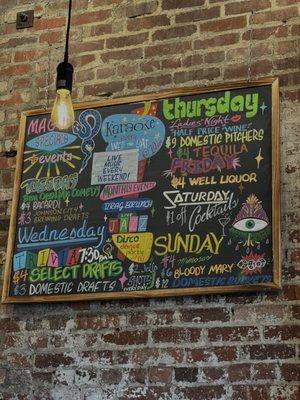 Specials
& events
Tuesday
$4 BACARDI
$3 JOHNSON CITY
BREWING DRAFTS
Wednesday
TRIVIA 7:30
$4 SELECT DRAFTS
$3 DOMESTIC DRAFTS
Karaoke
LIVE MUSIC
EVERY
WEEKEND!
MONTHLY EVENTS
DRAG BRUNCH
JAZZ
DISCO
dance
party
thursday
Ladies Night
HALF PRICE WINE
$9 DOMESTIC PITCHERS
$4 TEQUILA
FRIDAY
$4 WELL LIQUOR
SATURDAY
$1 off Cocktails
SUNDAY
$4 Mimosas
$6 BLOODY MARY
$12 DOMESTIC BUCKETS